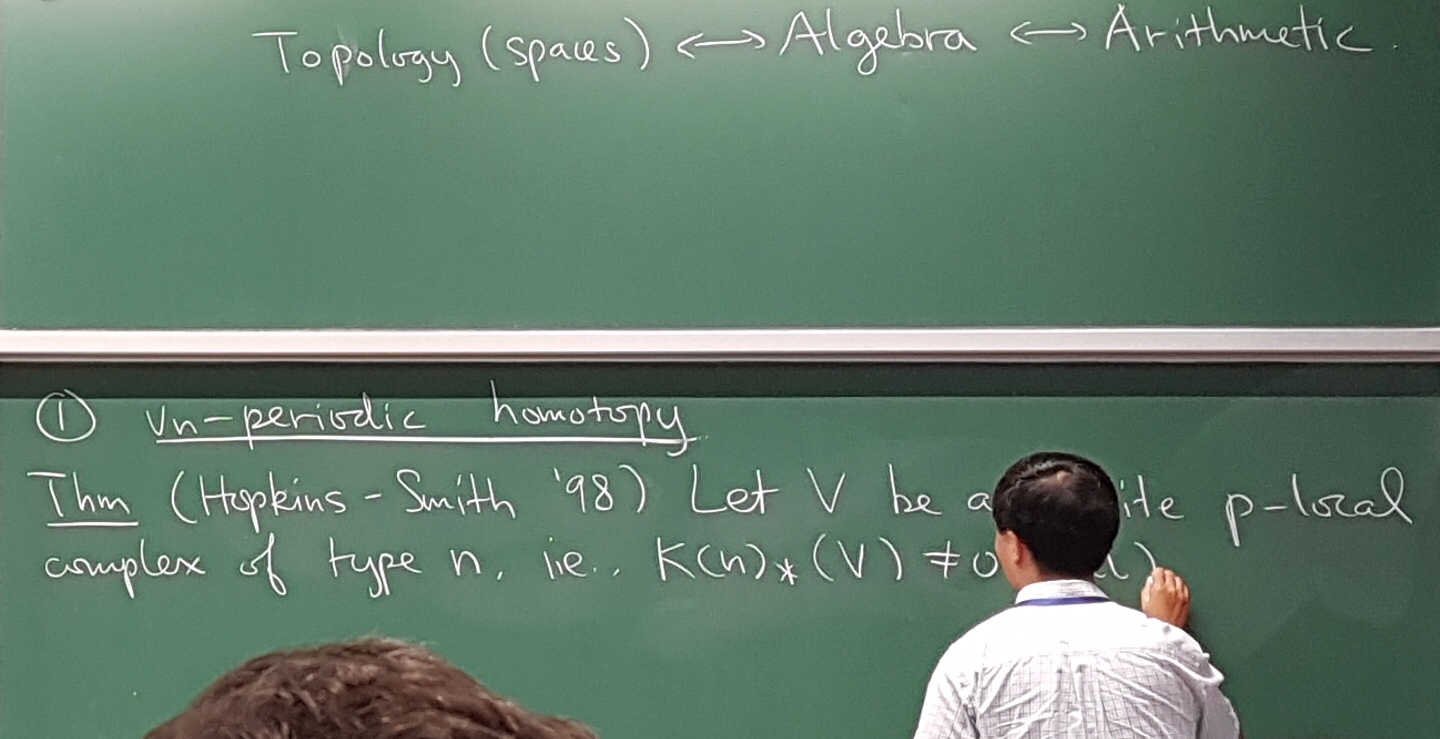 Topology (spaces) ↔ Algebra ↔ Arithmetic.
① vn-periodic homotopy
Thm (Hopkins-Smith '98) Let V be a p-local
complex of type n, i.e., K(n)_*(V) ≠ 0